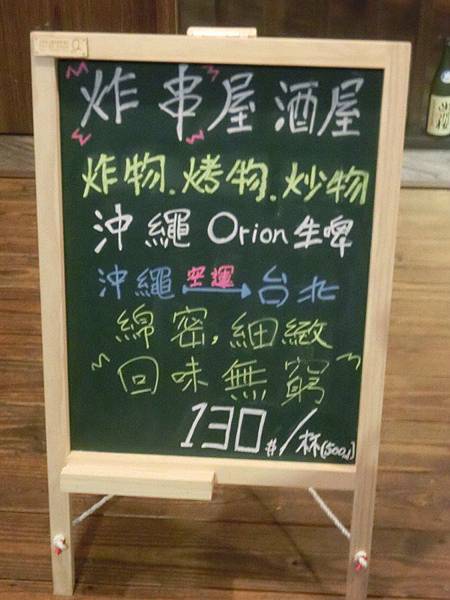 炸串屋酒屋
炸物.烤物.炒物
沖繩 Orion 生啤
沖繩 空運 台北
綿密,細緻
回味無窮
130元/杯(500ml)